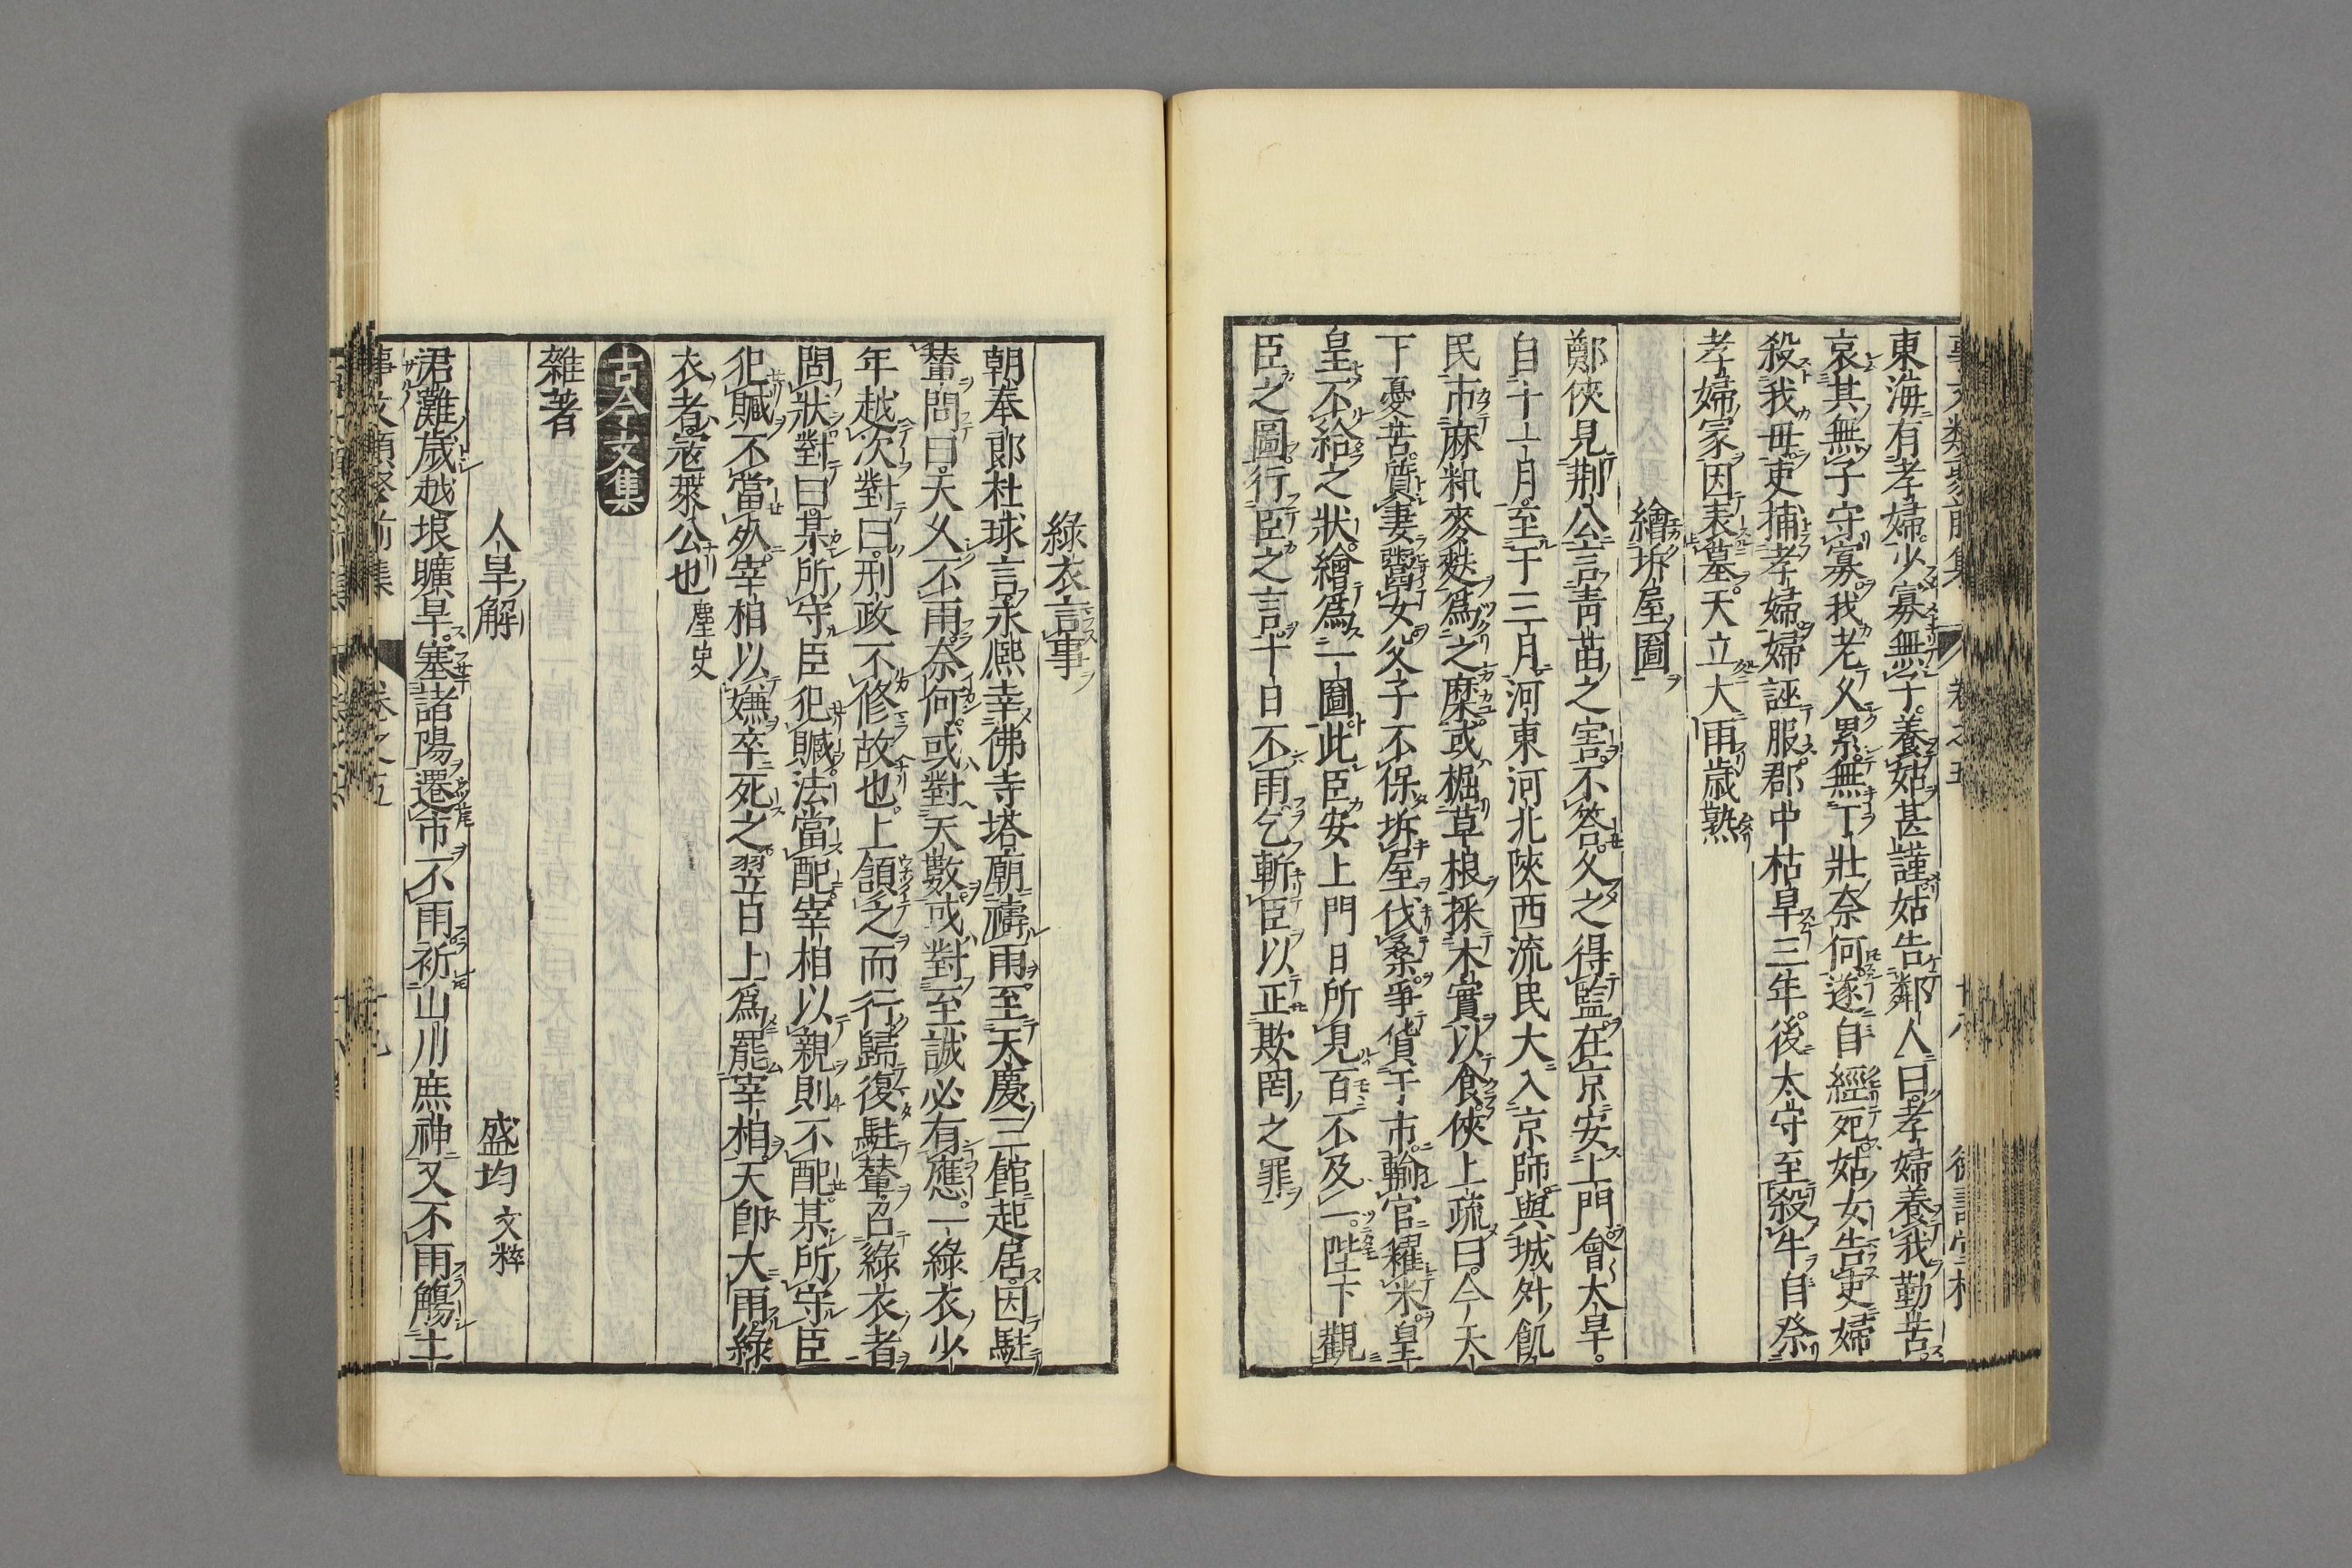 東海有孝婦少寡無子養姑甚謹姑告鄰人曰孝婦養我勤苦
哀其無子守寡我老久累無丁壯奈何遂自經死姑女告吏婦
殺我母吏捕孝婦婦誣服郡中枯旱三年後太守至殺牛自祭
孝婦冢因表墓天立大雨歳熟
繪拆屋圖
鄭俠見荆公言青苗之害不答久之得監在京安上門會大旱。
自十一月至于三月河東河北陜西流民大入京師與城外飢
民市麻籸麥麩爲之糜或掘草根採木實以食俠上疏曰今天
下憂苦質妻鬻女父子不保拆屋伐桑爭貨于市輸官糴米皇
皇不給之狀繪爲一圖此臣安上門日所見百不及一陛下觀
臣之圖行臣之言十日不雨乞斬臣以正欺罔之罪
綠衣言事
朝奉郎杜球言永熈幸佛寺塔廟禱雨至天慶三館起居因駐
輦問曰天久不雨奈何或對天數或對至誠必有應一綠衣少
年越次對曰刑政不修故也上頷之而行歸復駐輦召綠衣者
問狀對曰某所守臣犯贓法當配宰相以親則不配某所守臣
犯贓不當死宰相以嫌卒死之翌日上爲罷宰相天即大雨綠
衣者寇萊公也 塵史
古今文集
雜著
人旱解 盛均 文粹
涒灘歳越垠曠旱塞諸陽遷市不雨祈山川庶神又不雨觴土